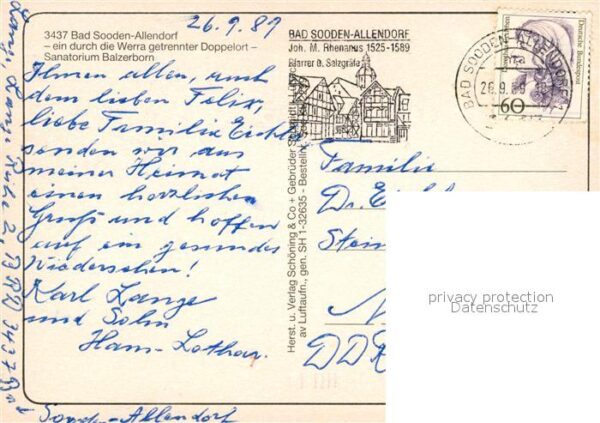 26.9.89
3437 Bad Sooden-Allendorf
– ein durch die Werra getrennter Doppelort –
Sanatorium Balzerborn
Ihnen allen, auch
dem lieben Felix,
liebe Familie
senden wir aus
meiner Heimat
einen herzlichen
Gruß und hoffen
auf ein gesundes
Wiedersehen!
Karl Lange
und Sohn
Hans-Lothar.
Lange, 2, BRD 3437 B
Sooden-Allendorf
Herst. u. Verlag Schöning & Co + Gebrüder
av Luftaufn., gen. SH 1-32635 - Bestellnr.
BAD SOODEN-ALLENDORF
Joh. M. Rhenanus 1525-1589
Pfarrer u. Salzgräfe
BAD SOODEN-ALLENDORF
26.9.89
Deutsche Bundespost
60
Familie
Dr.
DDR
privacy protection
Datenschutz